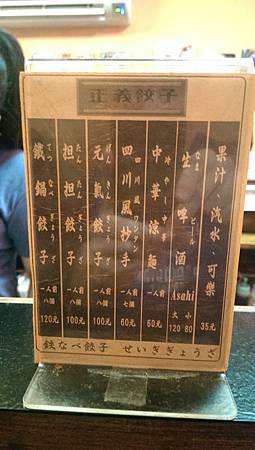 正義餃子
果汁、汽水、可樂 35元
生啤酒 Asahi 大 120 小 80
なま ビール
中華涼麵 一人前 60元
冷やし中華
四川風抄手 一人前 七個 60元
四川風 ワンタン
元氣餃子 一人前 八個 100元
げんき ぎょうざ
担担餃子 一人前 八個 100元
たんたん ぎょうざ
鐵鍋餃子 一人前 八個 120元
てつなべ ぎょうざ
鉄なべ餃子 せいぎぎょうざ